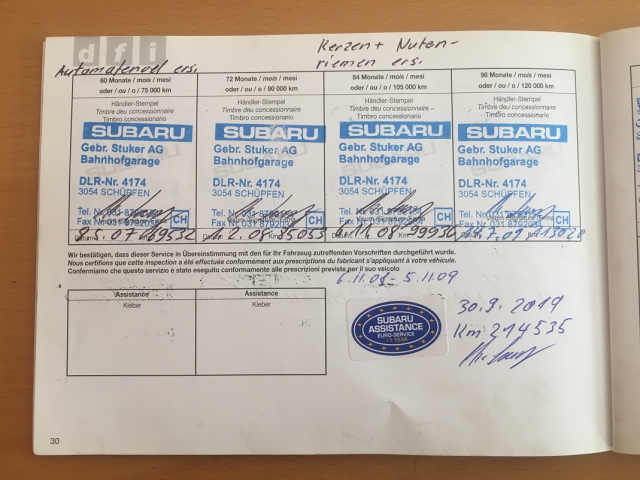 dfi
Kerzen + Nuten-
riemen ers.
Automatenoel ers.
60 Monate / mois / mesi
oder / ou / o / 75 000 km
72 Monate / mois / mesi
oder / ou / o / 90 000 km
84 Monate / mois / mesi
oder / ou / o / 105 000 km
96 Monate / mois / mesi
oder / ou / o / 120 000 km
Händler-Stempel
Timbre du concessionnaire
Timbro concessionario
Händler-Stempel
Timbre deu concessionnaire
Timbro concessionario
Händler-Stempel
Timbre deu concessionnaire
Timbro concessionario
Händler-Stempel
Timbre deu concessionnaire
Timbro concessionario
SUBARU
Gebr. Stuker AG
Bahnhofgarage
DLR-Nr. 4174
3054 SCHÜPFEN
Tel. Nr. 031 879
Fax Nr. 031 879203
CH
SUBARU
Gebr. Stuker AG
Bahnhofgarage
DLR-Nr. 4174
3054 SCHÜPFEN
Tel. Nr. 031 879
Fax Nr. 031 879203
CH
SUBARU
Gebr. Stuker AG
Bahnhofgarage
DLR-Nr. 4174
3054 SCHÜPFEN
Tel. Nr. 031 879
Fax Nr. 031 879203
CH
SUBARU
Gebr. Stuker AG
Bahnhofgarage
DLR-Nr. 4174
3054 SCHÜPFEN
Tel. Nr. 031 879
Fax Nr. 031 879203
CH
Wir bestätigen, dass dieser Service in Übereinstimmung mit den für Ihr Fahrzeug zutreffenden Vorschriften durchgeführt wurde.
Nous certifions que cette inspection a été effectuée conformément aux prescriptions du fabricant s'appliquant à votre véhicule.
Confermiamo che questo servizio è stato eseguito conformamente alle prescrizioni previste per il suo veicolo
6.11.08 - 5.11.09
Assistance
Kleber
Assistance
Kleber
SUBARU
ASSISTANCE
EURO-SERVICE
1 YEAR
30.9.2019
Km 214535
30